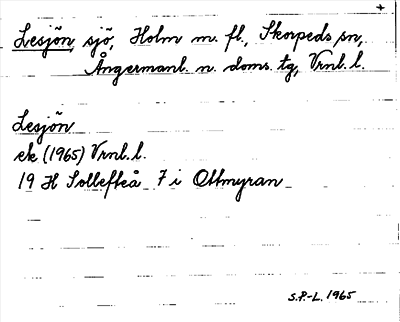 Lesjön, sjö, Holm m. fl., Skorpeds sn,
Ångermanl. n. doms. tg, Vrnl. l.
Lesjön
ek (1965) Vrnl. l.
19 H Sollefteå 7 i Ottmyran
S.P.-L. 1965